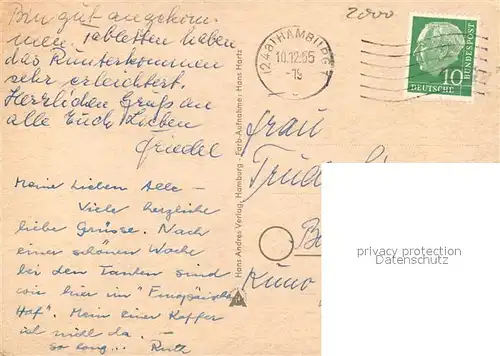 Bin gut angekom-
men, Tabletten haben
das Runterkommen
sehr erleichtert.
Herzlichen Gruß an
alle Euch Lieben
Friedel
Meine Lieben Alle –
Viele herzliche
liebe Grüsse. Nach
einer schönen Woche
bei den Tanten sind
wir hier im "Europäischen
Hof". Mein einer Koffer
ist nicht da. –
so long... Ruth
Hans Andres Verlag, Hamburg - Farb-Aufnahme: Hans Hartz
2000
(24a) HAMBURG
10.12.55
-19
10
DEUTSCHE
BUNDESPOST
Frau
Trude
Kuno
privacy protection
Datenschutz